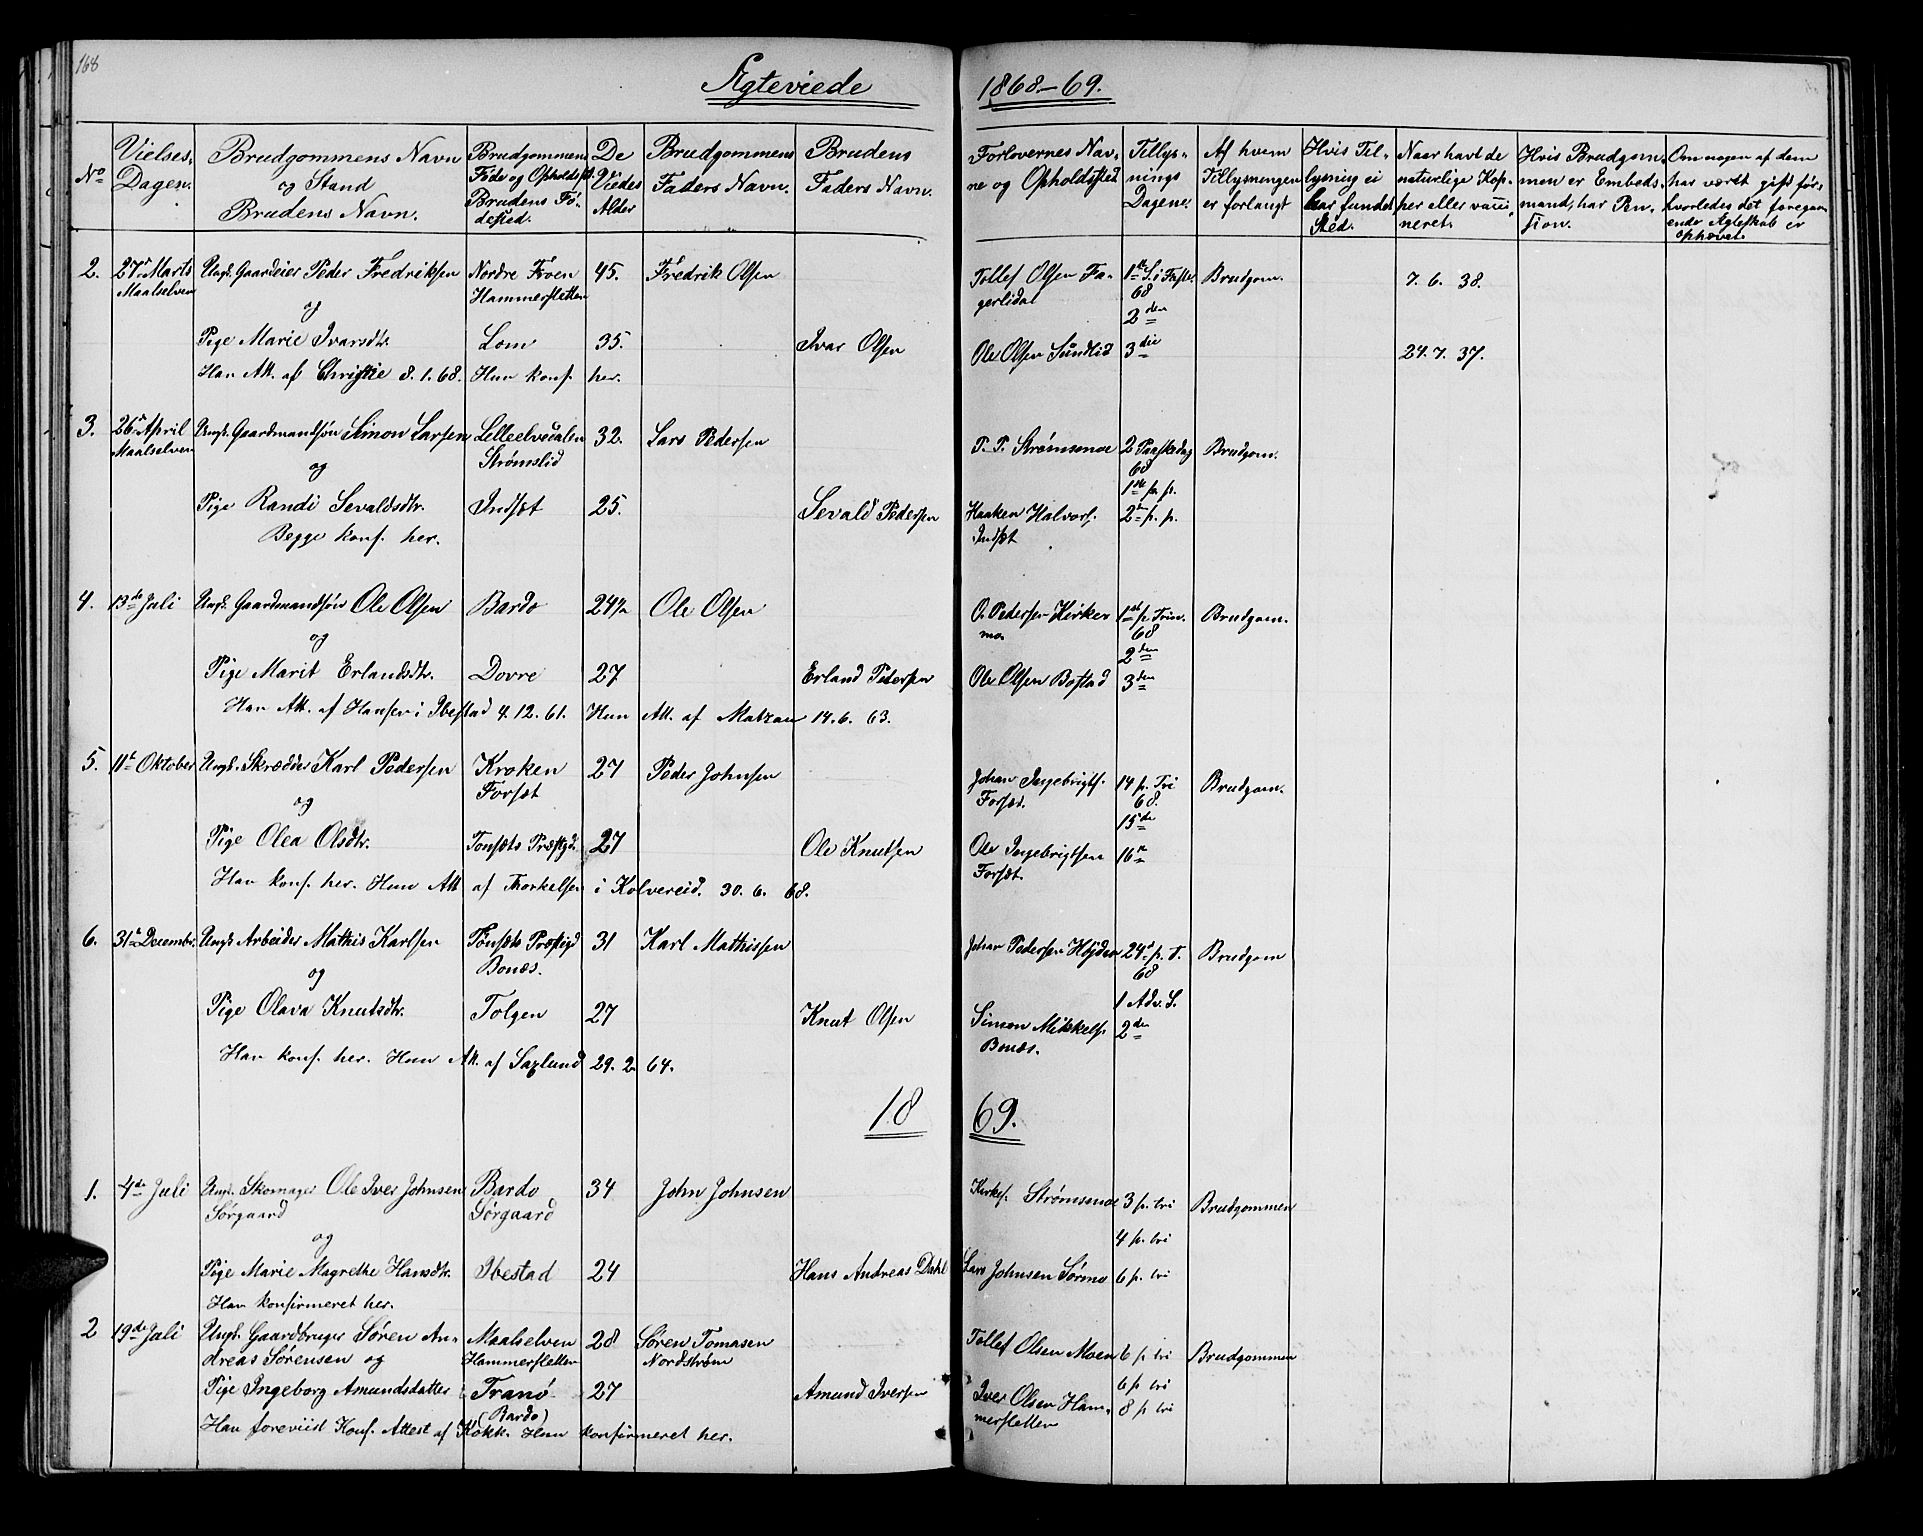 168
Ægteviede 1868-69.
No
Vielses-
Dagen.
Brudgommens Navn
og Stand
Brudens Navn.
Brudgommens
Føde og Opholdsst.
Brudens Fø-
dested.
De
Viedes
Alder
Brudgommens
Faders Navn.
Brudens
Faders Navn.
Forlovernes Nav-
ne og Opholdssted
Tillys-
nings
Dagene.
Af hvem
Tillysningen
er forlangt
Hvis Til-
lysning ei
har fundet
Sted.
Naar havt de
naturlige Kop-
per eller vacci-
neret.
Hvis Brudgom-
men er Embeds-
mand, har Pen-
sion.
Om nogen af dem
har været gift før,
hvorledes det foregaa-
ende Ægteskab er
ophævet.
2. 27de Marts Ungk. Gaardeier Peder Fredriksen Nordre Froen 45. Fredrik Olsen Tollef Olsen Fa- 1ste S. i Faste Brudgom. 7. 6. 38.
Maalselven Hammersletten gerlidal 68
og 2den
Pige Marie Ivarsdtr. Lom 35. Ivar Olsen Ole Olsen Sundlid 3die 24. 7. 37.
Han Att. af Christie 8. 1. 68. Hun konf. her.
3. 26de April Ungk. Gaardmandsøn Simon Larsen Lilleelvedalen 32. Lars Pedersen P. P. Strømsmoe 2 Paaskedag Brudgom.
Maalselven Strømslid 68
og 1ste p. p.
Pige Randi Sevaldsdtr. Indset 25. Sevald Pedersen Haaken Halvors. 2den p. p.
Begge konf. her. Indset
4. 13de Juli Ungk. Gaardmandsøn Ole Olsen Bardo 24½ Ole Olsen O. Pedersen Kirke- 1ste p. Trin. Brudgom.
mo. 68
og 2den
Pige Marit Erlandsdtr. Dovre 27 Erland Pedersen Ole Olsen Bostad 3den
Han Att. af Hansen i Ibestad 4. 12. 61. Hun Att. af Matzau 14. 6. 63.
5. 11te Oktober Ungk. Skrædder Karl Pedersen Kroken 27 Peder Johnsen Johan Ingebrigts. 14 p. Tri Brudgom.
Forset Forset. 68.
og 15de
Pige Olea Olsdtr. Tonsets Præstgd. 27 Ole Knutsen Ole Ingebrigtsen 16de
Forset.
Han konf. her. Hun Att. af Thorkelsen i Kolvereid. 30. 6. 68.
6. 31te Decembr. Ungk. Arbeider Mathis Karlsen Tønsets Præstgd 31 Karl Mathissen Johan Pedersen Højdem 24de p. T. Brudgom
Bonæs. 68
og 1 Adv. S.
Pige Olava Knutsdtr. Tolgen 27 Knut Olsen Simon Mikkels. 2den
Bonæs.
Han konf. her. Hun Att. af Saxlund 29. 2. 64.
1869.
1. 4de Juli Ungk. Skomager Ole Iver Johnsen Bardo 34 John Johnsen Kirkes. Strømsmoe 3 p. tri Brudgommen
Sørgaard Sørgaard
og 4 p. tri
Pige Marie Magrethe Hansdtr. Ibestad 24 Hans Andreas Dahl Lars Johnsen Sørmo 6 p. tri
Han konfirmeret her.
2 19de Juli Ungk. Gaardbruger Søren An- Maalselven 28 Søren Tomasen Tollef Olsen Moen 6 p tri Brudgommen
dreas Sørensen og Hammersletten Nordstrøm
Pige Ingeborg Amundsdatter Tranø 27 Amund Iversen Iver Olsen Ham- 6 p tri
(Bardo) mersletten 8 p tri
Han foreviist Konf. Attest af Kokk. Hun konfirmeret her.